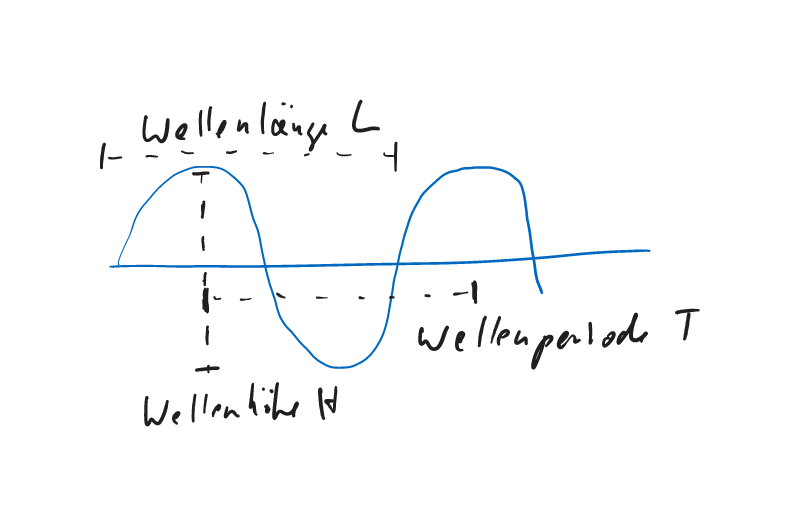 Wellenlänge L
Wellenperiode T
Wellenhöhe H